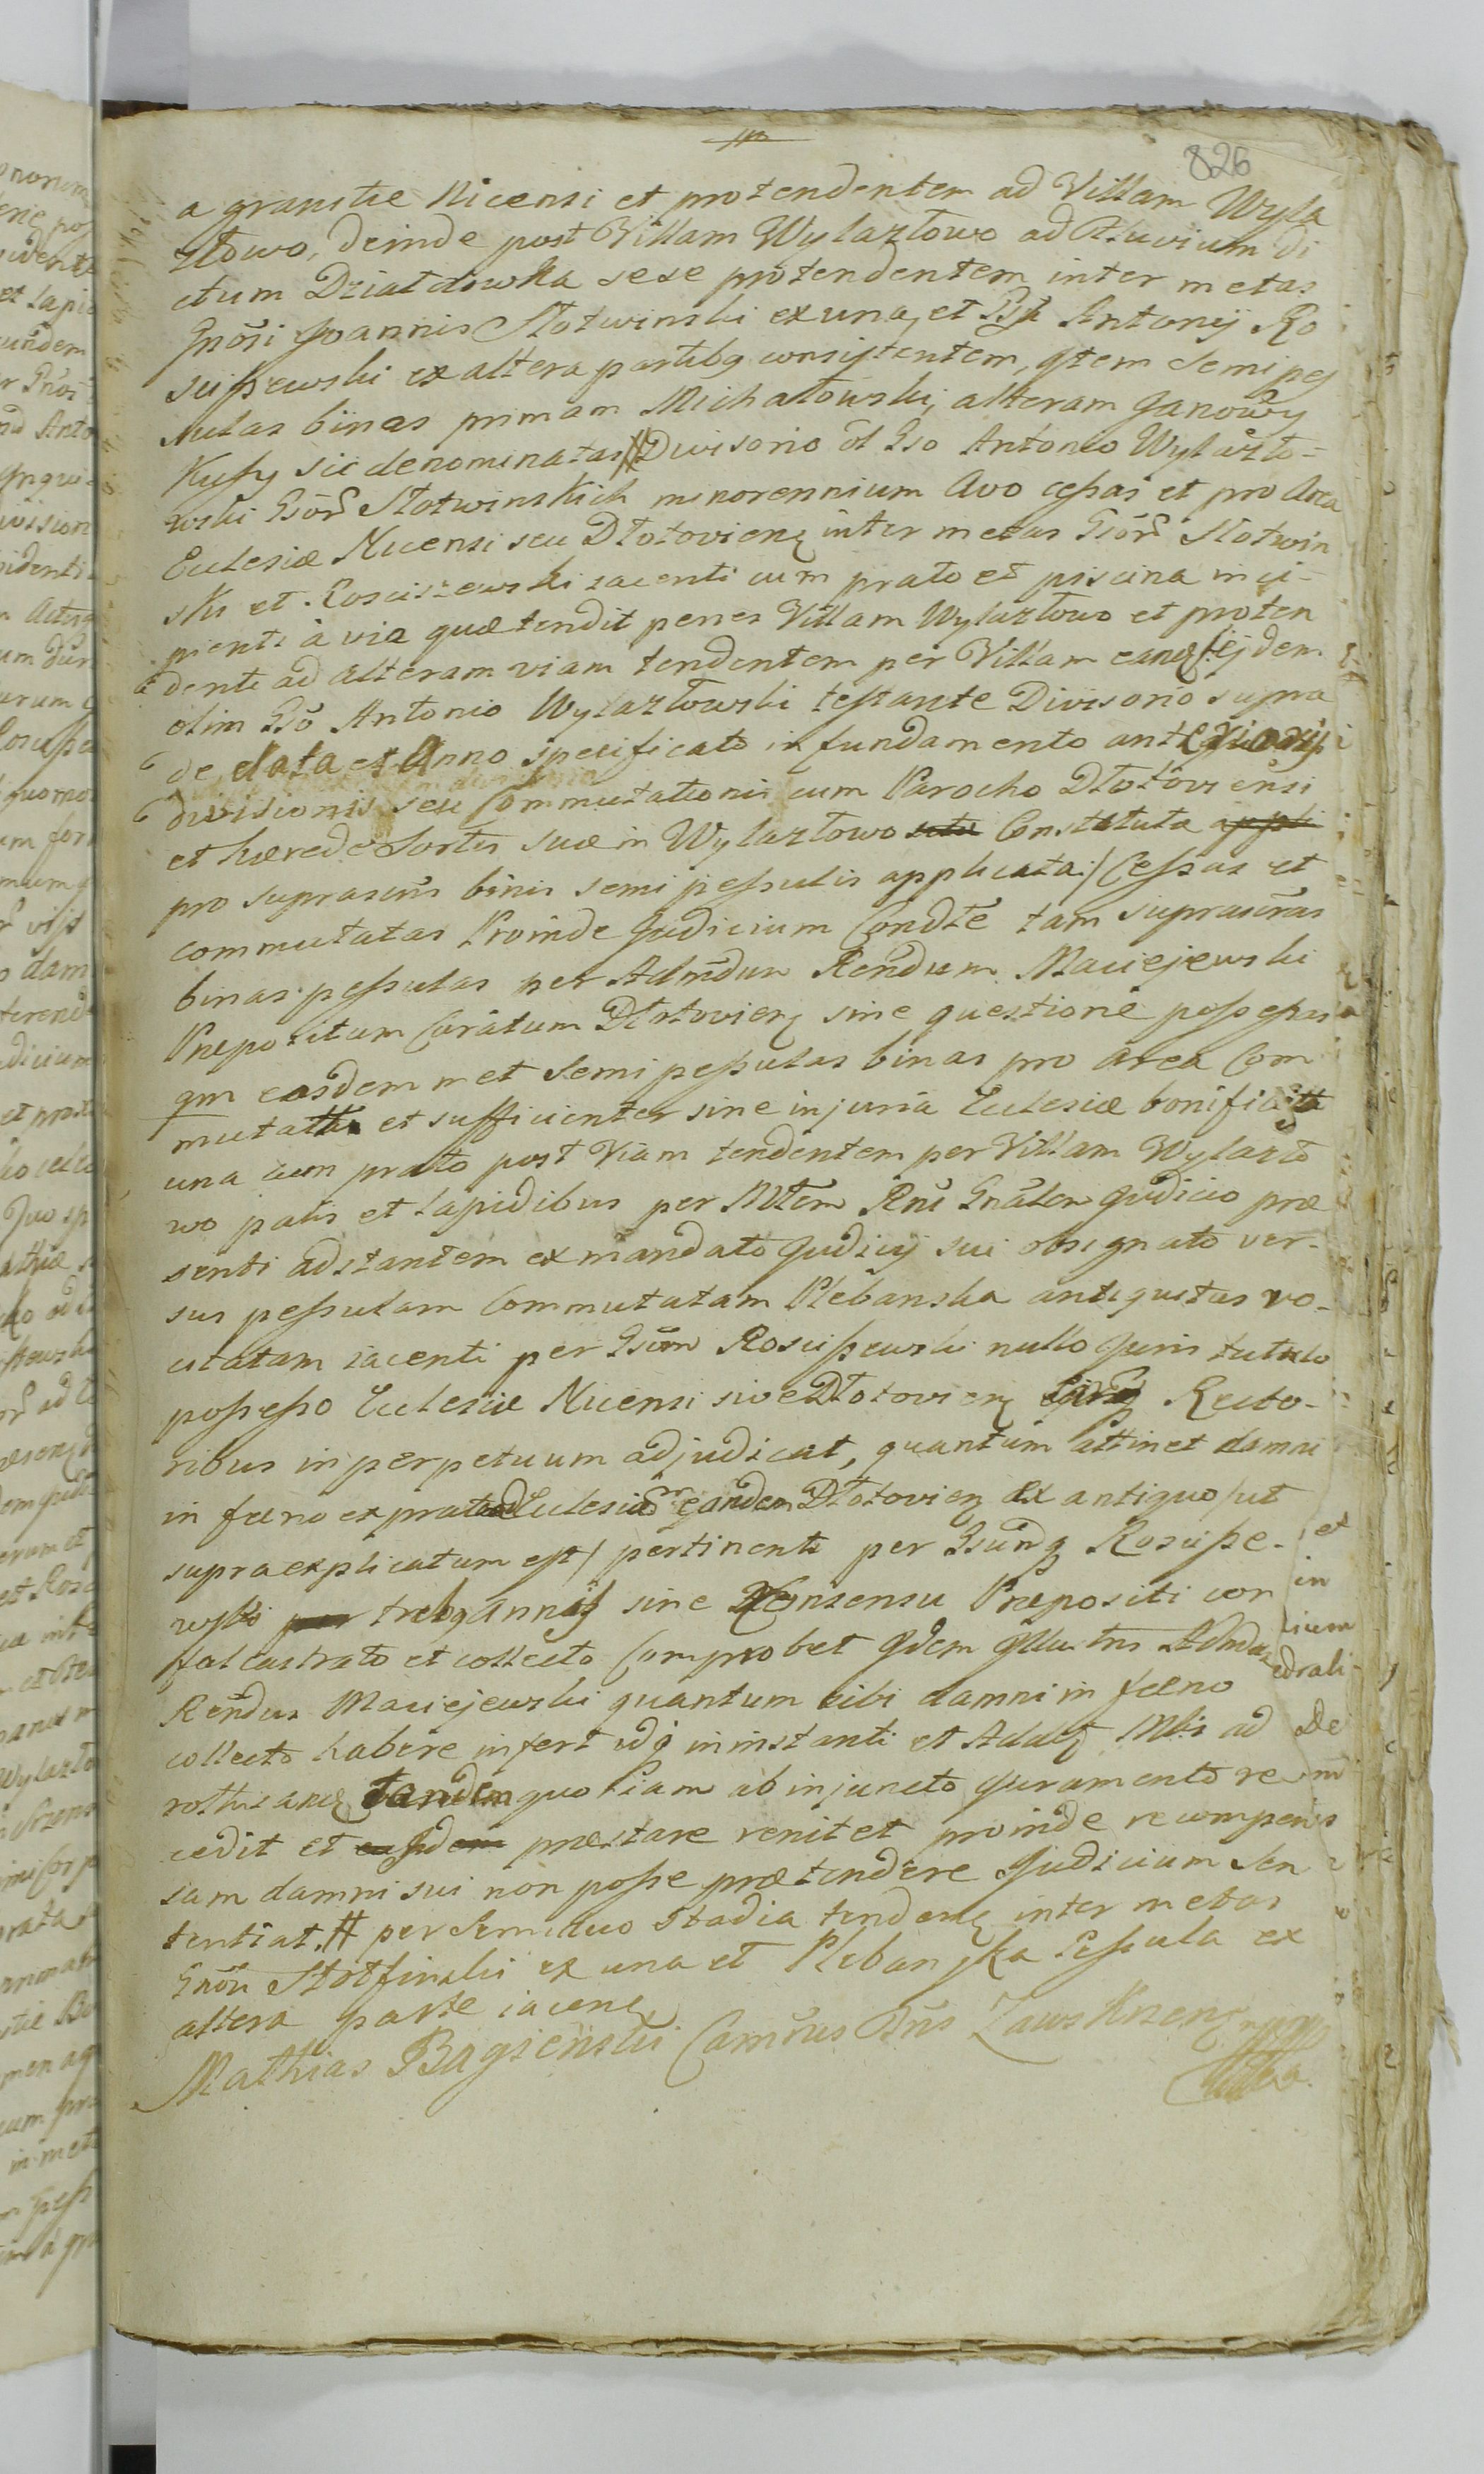 826
a granitie Nicensi et protendentem ad Villam Wyla
złowo, deinde post Villam Wylazłowo ad Fluvium di
ctum Działdowka sese protendentem inter metas
Gnosi Joannis Słotwinski ex una, et Antonij Ro
sciszewski ex altera partibq consistentem, qtem Semipes
sulas binas primam Michałowski, alteram Janowy
Kąsy sic denominatas # Divisorio ol Gso Antonio Wylazło-
wski Gsor Słotwinskich minorennium Avo cessas et pro Area
Eclesiæ Nicensi seu Dłotovienq inter metas Gsor Słotwin
ski et Rosciszewski iacenti cum prato et piscina inci-
pienti à via quæ tendit penes Villam Wylazłowo et proten
denti ad alteram viam tendentem per Villam eandq ejdem
olim Gso Antonio Wylazłowski testante Divisorio supra
de data et Anno specificato in fundamento
divisionis seu Commutationis cum Parocho Dłotoviensi
et hærede Sortis suæ in Wylazłowo Constituta
pro suprascris binis semipessulis applicata:/ Cessas et
commutatas Proinde Judicium Condte tam suprascras
binas pessulas per Admdum Rendum Maciejewski
Prepositum Curatum Dłotovienq sine questione possessas
qm easdem met Semipessulas binas pro area Com
mutatta et sufficienter sine injuria Eclesiæ bonificata
una cum prato post Viam tendentem per Villam Wylazło
wo palis et lapidibus per Mtem Rni Gnalem Judicio præ
senti adstantem ex mandato Judicij sui obsignato ver-
sus pessulam Commutatam Plebanska antiquitus vo-
citatam iacenti per Gsum Rosciszewski nullo Juris tutulo
possesso Eclesiæ Nicensi sive Dłotovienq Recto-
ribus in perpetuum adjudicat, quantum attinet damni
in fæno ex prato Eclesiæ eandem Dłotovienq ex antiquo /ut
supra explicatum est/ pertinenti per Gsundq Roscisze-
wski tribq annis sine Consensu Prepositi
falcastrato et collecto Comprobet Idem Illustris Admdus
Rendus Maciejewski quantum sibi damni in fæno
collecto habere infert idq in instanti et Mtis ad
rothis anq Tandem quoniam ab injuncto Juramento re
cedit et præstare renitet proinde recompen
sam damni sui non posse prætendere Judicium Sen
tentiat. # per Semiduo Stadia tendenq inter metas
Gnosi Słotfinski ex una et Plebanska Pessula ex
altera parte iacenq
Mathias Bagienski Camrus Gnis Zawskrzenq
et
in
edrali
De